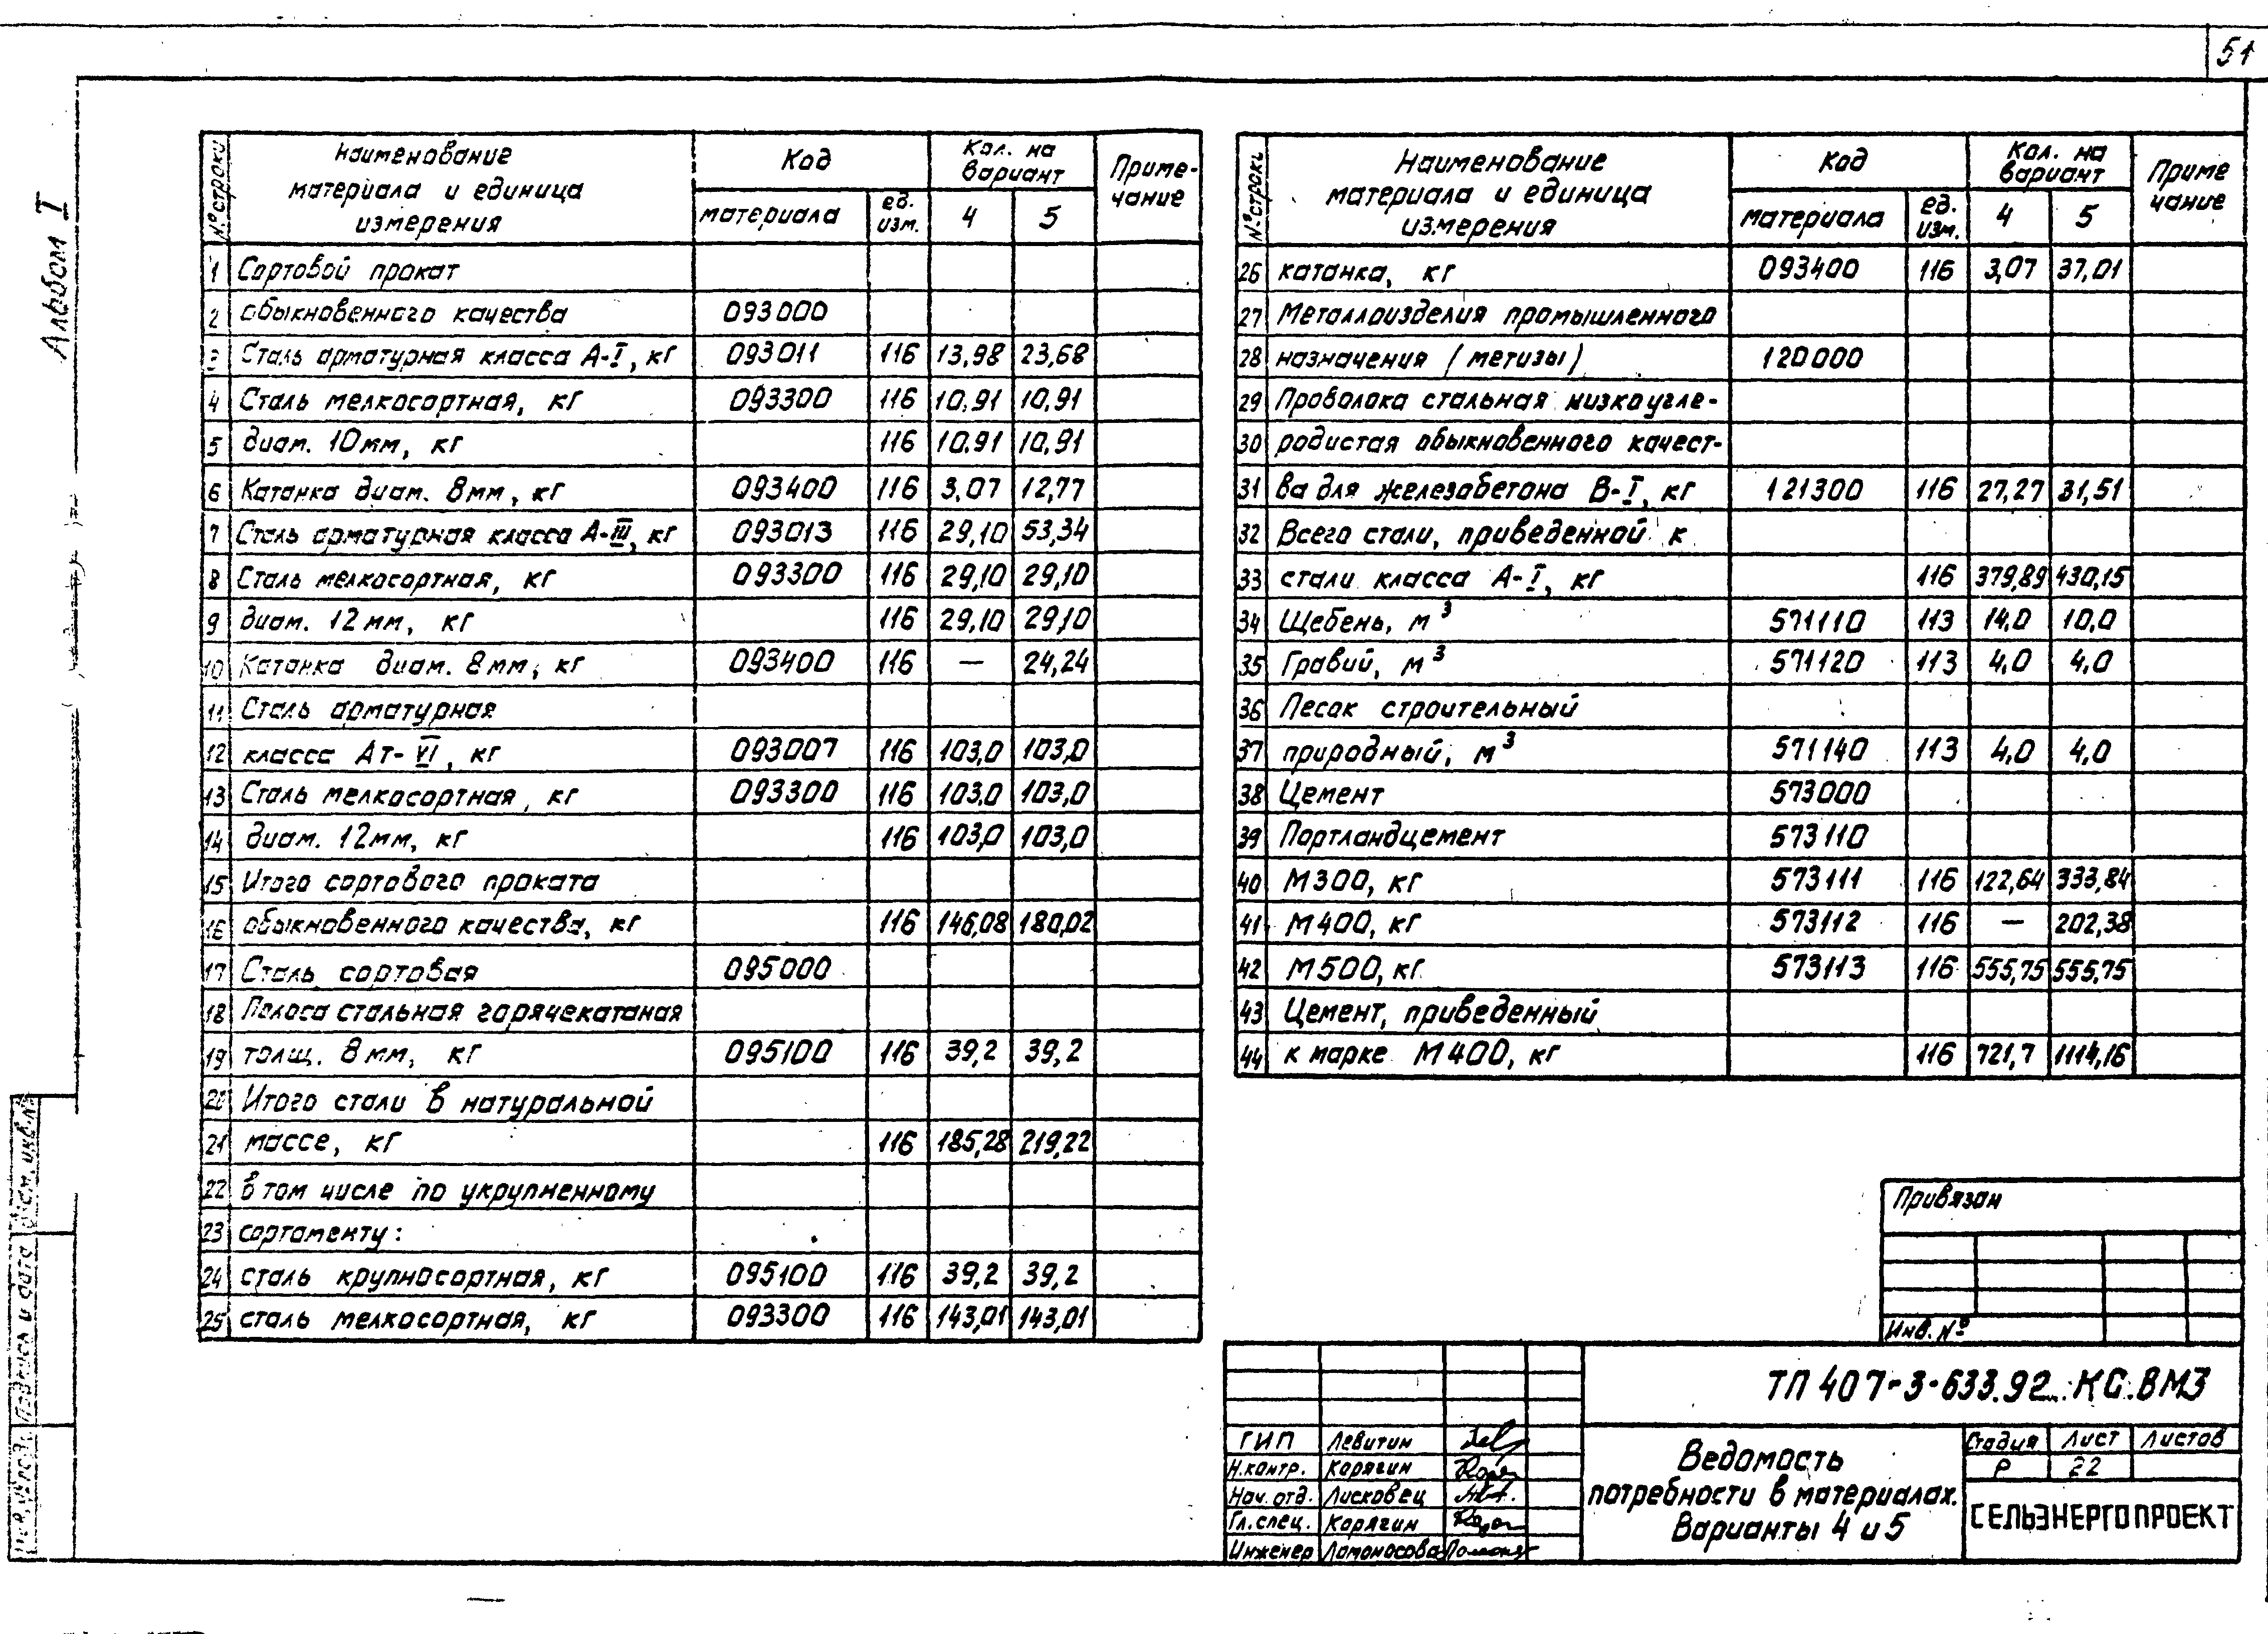 51
Альбом I
№ строки | Наименование материала и единица измерения | Код | Кол. на вариант | Примечание
материала | ед. изм. | 4 | 5
1 Сортовой прокат
2 обыкновенного качества 093000
3 Сталь арматурная класса А-I, кг 093011 116 13,98 23,68
4 Сталь мелкосортная, кг 093300 116 10,91 10,91
5 диам. 10мм, кг 116 10,91 10,91
6 Катанка диам. 8мм, кг 093400 116 3,07 12,77
7 Сталь арматурная класса А-III, кг 093013 116 29,10 53,34
8 Сталь мелкосортная, кг 093300 116 29,10 29,10
9 диам. 12мм, кг 116 29,10 29,10
10 Катанка диам. 8мм, кг 093400 116 — 24,24
11 Сталь арматурная
12 класса Ат-VI, кг 093007 116 103,0 103,0
13 Сталь мелкосортная, кг 093300 116 103,0 103,0
14 диам. 12мм, кг 116 103,0 103,0
15 Итого сортового проката
16 обыкновенного качества, кг 116 146,08 180,02
17 Сталь сортовая 095000
18 Полоса стальная горячекатаная
19 толщ. 8мм, кг 095100 116 39,2 39,2
20 Итого стали в натуральной
21 массе, кг 116 185,28 219,22
22 в том числе по укрупненному
23 сортаменту:
24 сталь крупносортная, кг 095100 116 39,2 39,2
25 сталь мелкосортная, кг 093300 116 143,01 143,01
№ строкь | Наименование материала и единица измерения | Код | Кол. на вариант | Приме чание
материала | ед. изм. | 4 | 5
26 катанка, кг 093400 116 3,07 37,01
27 Металлоизделия промышленного
28 назначения (метизы) 120000
29 Проволока стальная низкоугле-
30 родистая обыкновенного качест-
31 ва для железобетона В-I, кг 121300 116 27,27 31,51
32 Всего стали, приведенной к
33 стали класса А-I, кг 116 379,89 430,15
34 Щебень, м³ 571110 113 14,0 10,0
35 Гравий, м³ 571120 113 4,0 4,0
36 Песок строительный
37 природный, м³ 571140 113 4,0 4,0
38 Цемент 573000
39 Портландцемент 573110
40 М300, кг 573111 116 122,64 333,84
41 М400, кг 573112 116 — 202,38
42 М500, кг 573113 116 555,75 555,75
43 Цемент, приведенный
44 к марке М400, кг 116 721,7 1114,16
Привязан
Инв. №
ТП 407-3-633.92 КС.ВМ3
ГИП Левитин
Н.контр. Карягин
Нач. отд. Лисковец
Гл. спец. Карягин
Инженер Ломоносова
Ведомость
потребности в материалах.
Варианты 4 и 5
Стадия Лист Листов
Р 22
СЕЛЬЭНЕРГОПРОЕКТ
Взам. инв. №
Подпись и дата